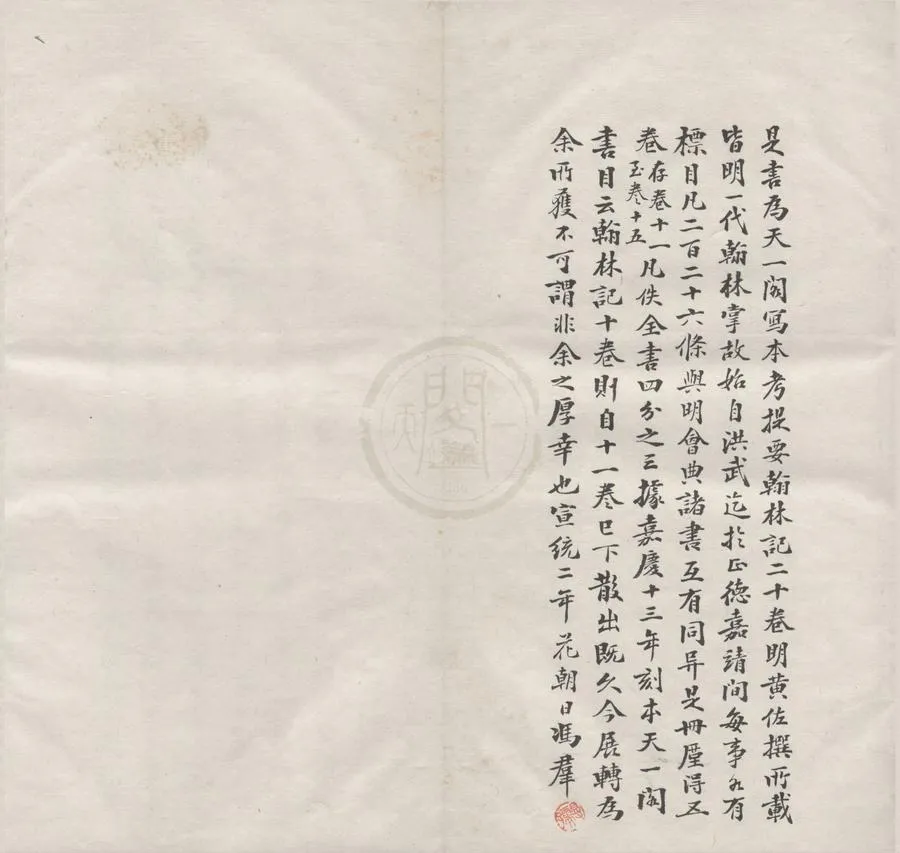 是書為天一閣寫本考提要翰林記二十卷明黃佐撰所載
皆明一代翰林掌故始自洪武迄於正德嘉靖間每事各有
標目凡二百二十六條與明會典諸書互有同异是冊廑得五
卷存卷十一至卷十五凡佚全書四分之三據嘉慶十三年刻本天一閣
書目云翰林記十卷則自十一卷已下散出既久今展轉為
余所獲不可謂非余之厚幸也宣統二年花朝日馮羣